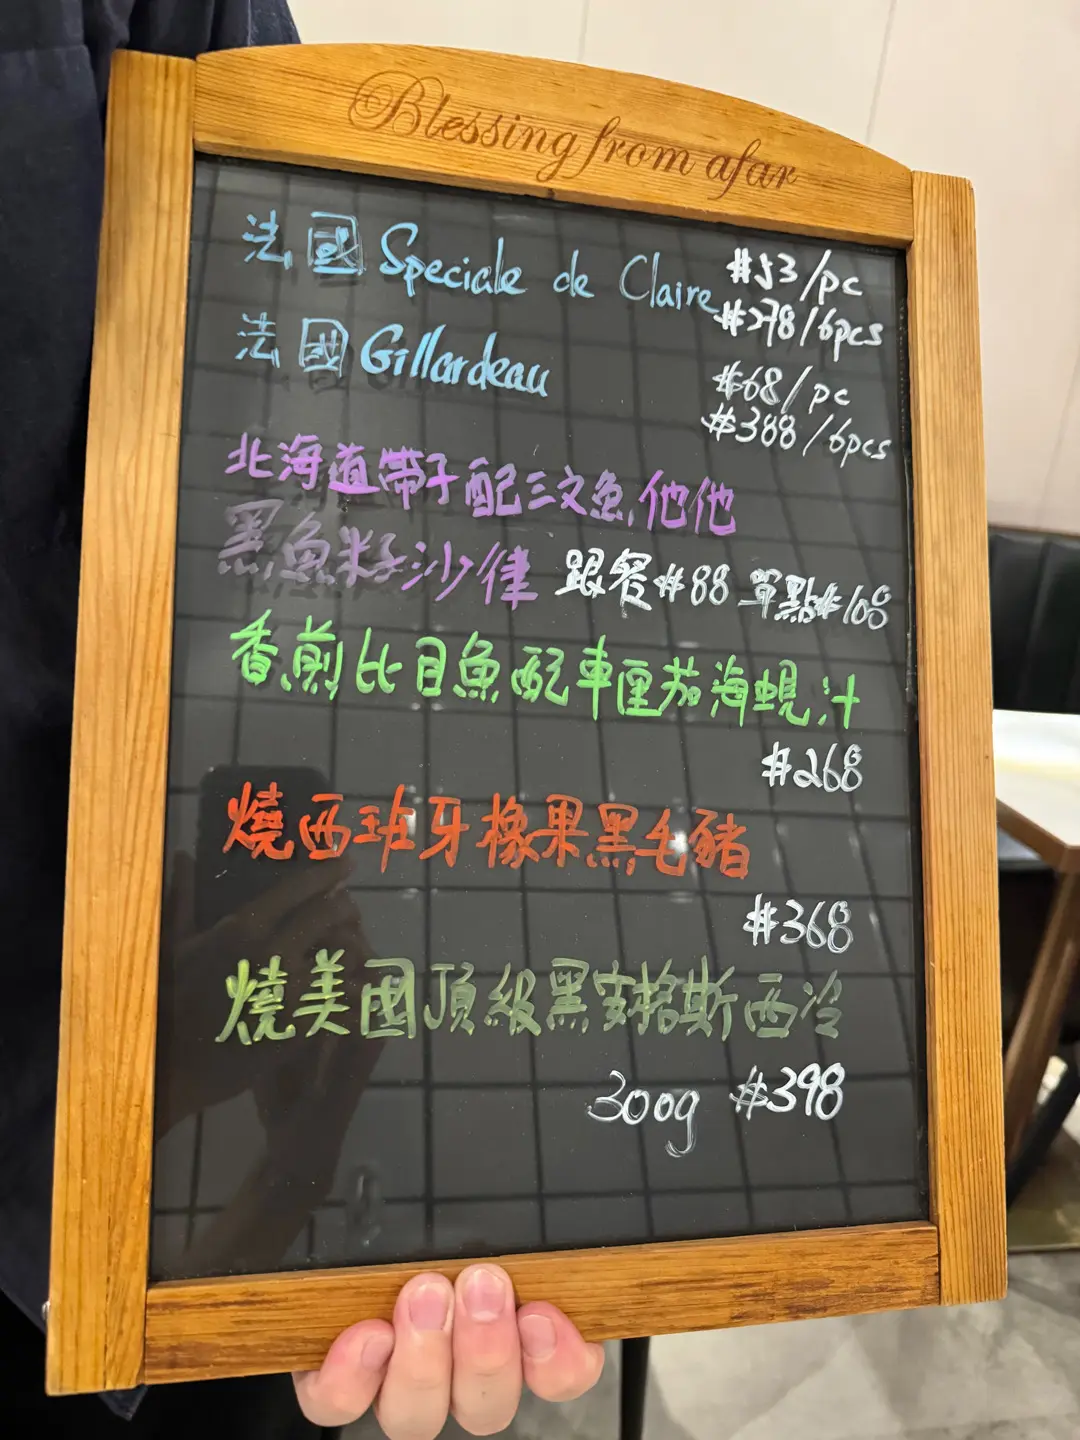 Blessing from afar
法國 Speciale de Claire $53/pc
$278/6pcs
法國 Gillardeau $68/pc
$388/6pcs
北海道帶子配三文魚他他
黑魚籽沙律 跟餐$88 單點$108
香煎比目魚配車厘茄海蜆汁
$268
燒西班牙橡果黑毛豬
$368
燒美國頂級黑安格斯西冷
300g $398